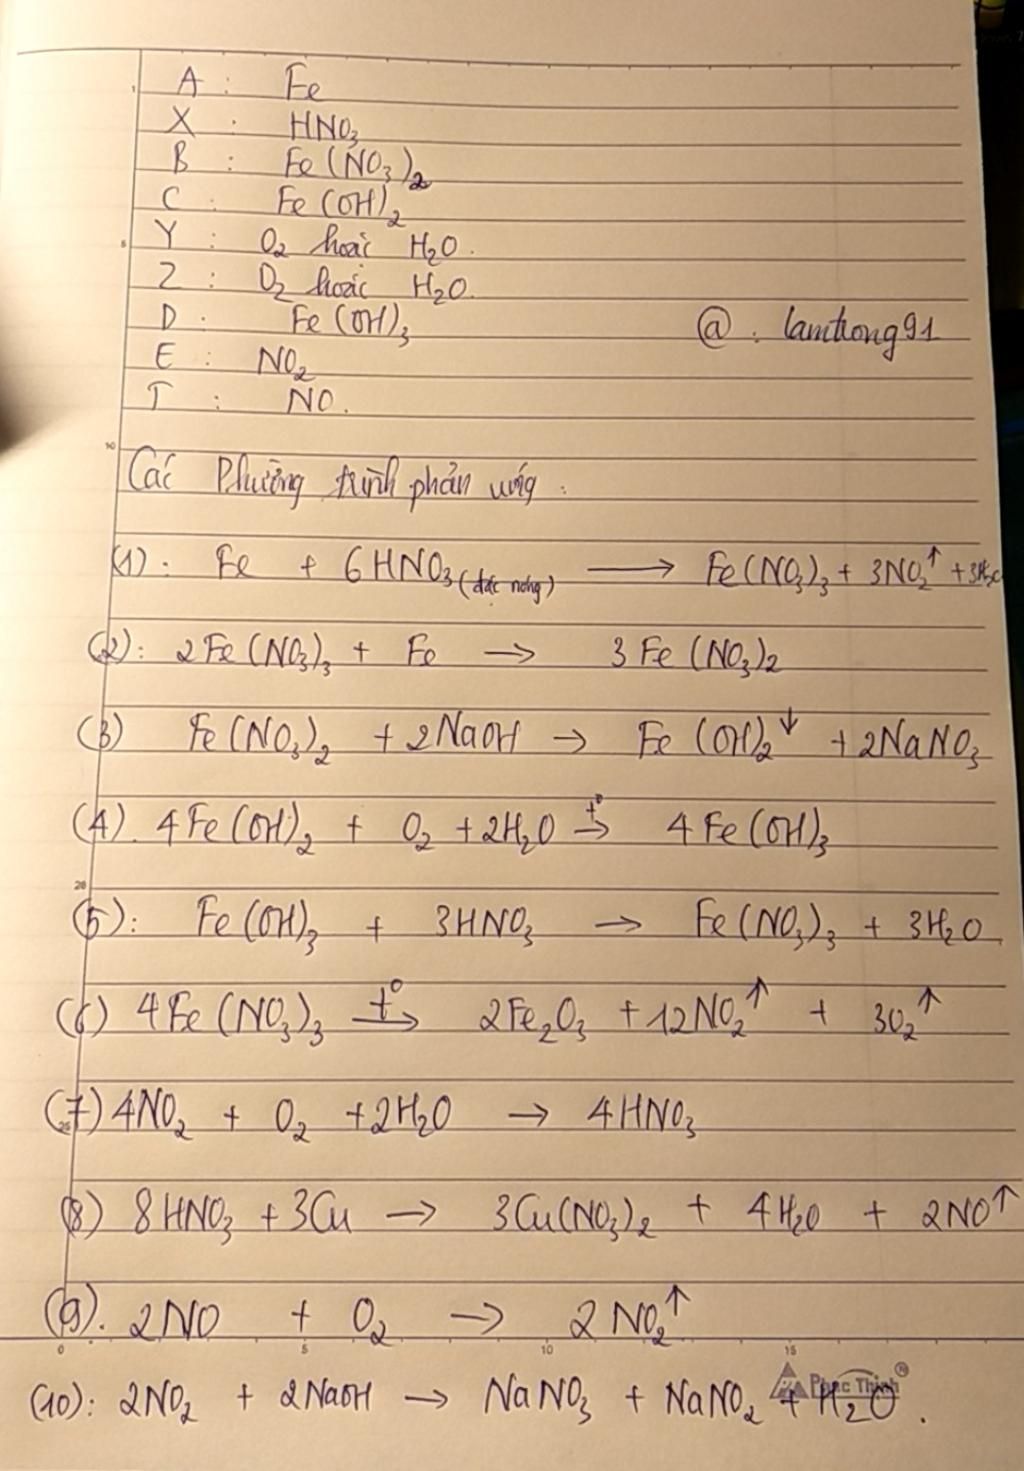 A : Fe
X : HNO₃
B : Fe(NO₃)₂
C : Fe(OH)₂
Y : O₂ hoặc H₂O.
Z : O₂ hoặc H₂O.
D : Fe(OH)₃
@ : lamtrong91
E : NO₂
T : NO.
10
Các Phương trình phản ứng :
(1): Fe + 6HNO₃(đặc nóng) ⟶ Fe(NO₃)₃ + 3NO₂↑ + 3H₂O
(2): 2Fe(NO₃)₃ + Fe → 3Fe(NO₃)₂
(3) Fe(NO₃)₂ + 2NaOH → Fe(OH)₂↓ + 2NaNO₃
(4). 4Fe(OH)₂ + O₂ + 2H₂O →(t°) 4Fe(OH)₃
20
(5): Fe(OH)₃ + 3HNO₃ → Fe(NO₃)₃ + 3H₂O.
(6) 4Fe(NO₃)₃ →(t°) 2Fe₂O₃ + 12NO₂↑ + 3O₂↑
(7) 4NO₂ + O₂ + 2H₂O → 4HNO₃
(8) 8HNO₃ + 3Cu → 3Cu(NO₃)₂ + 4H₂O + 2NO↑
(9). 2NO + O₂ → 2NO₂↑
0 5 10 15
Phúc Thịnh
(10): 2NO₂ + 2NaOH → NaNO₃ + NaNO₂ + H₂O.